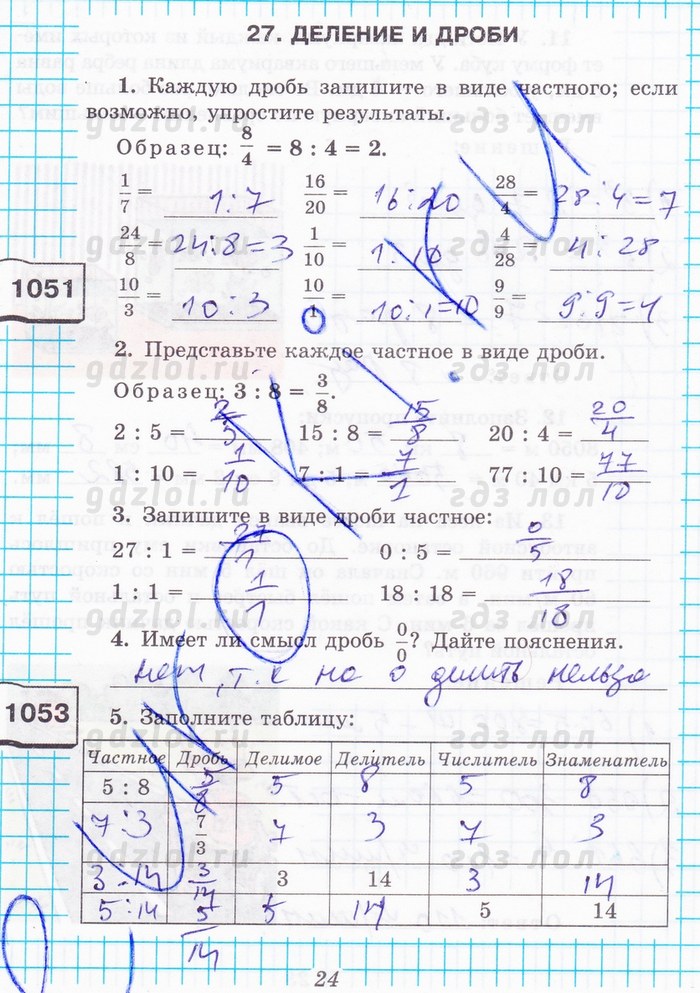 27. ДЕЛЕНИЕ И ДРОБИ
1. Каждую дробь запишите в виде частного; если
возможно, упростите результаты.
Образец: 8/4 = 8 : 4 = 2.
1/7 = 1:7 16/20 = 16:20 28/4 = 28:4=7
24/8 = 24:8=3 1/10 = 1:10 4/28 = 4:28
1051
10/3 = 10:3 10/1 = 10:1=10 9/9 = 9:9=1
2. Представьте каждое частное в виде дроби.
Образец: 3 : 8 = 3/8.
2 : 5 = 2/5 15 : 8 = 15/8 20 : 4 = 20/4
1 : 10 = 1/10 7 : 1 = 7/1 77 : 10 = 77/10
3. Запишите в виде дроби частное:
27 : 1 = 27/1 0 : 5 = 0/5
1 : 1 = 1/1 18 : 18 = 18/18
4. Имеет ли смысл дробь 0/0? Дайте пояснения.
нет, т.к на 0 делить нельзя
1053
5. Заполните таблицу:
Частное Дробь Делимое Делитель Числитель Знаменатель
5 : 8 5/8 5 8 5 8
7:3 7/3 7 3 7 3
3:14 3/14 3 14 3 14
5:14 5/14 5 14 5 14
24
gdzlol.ru гдз лол